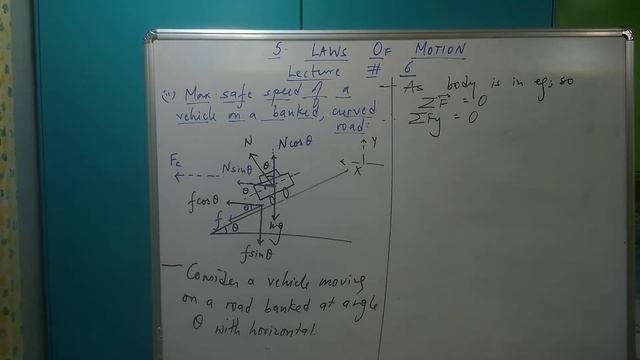 5. LAWS OF MOTION
Lecture # 6
(ii) Max. safe speed of a
vehicle on a banked, curved
road:
N
Ncosθ
Fc
Nsinθ
θ
θ
fcosθ
f
θ
θ
mg
fsinθ
Y
X
— Consider a vehicle moving
on a road banked at angle
θ with horizontal.
As body is in eq; so
ΣF = 0
ΣFy = 0